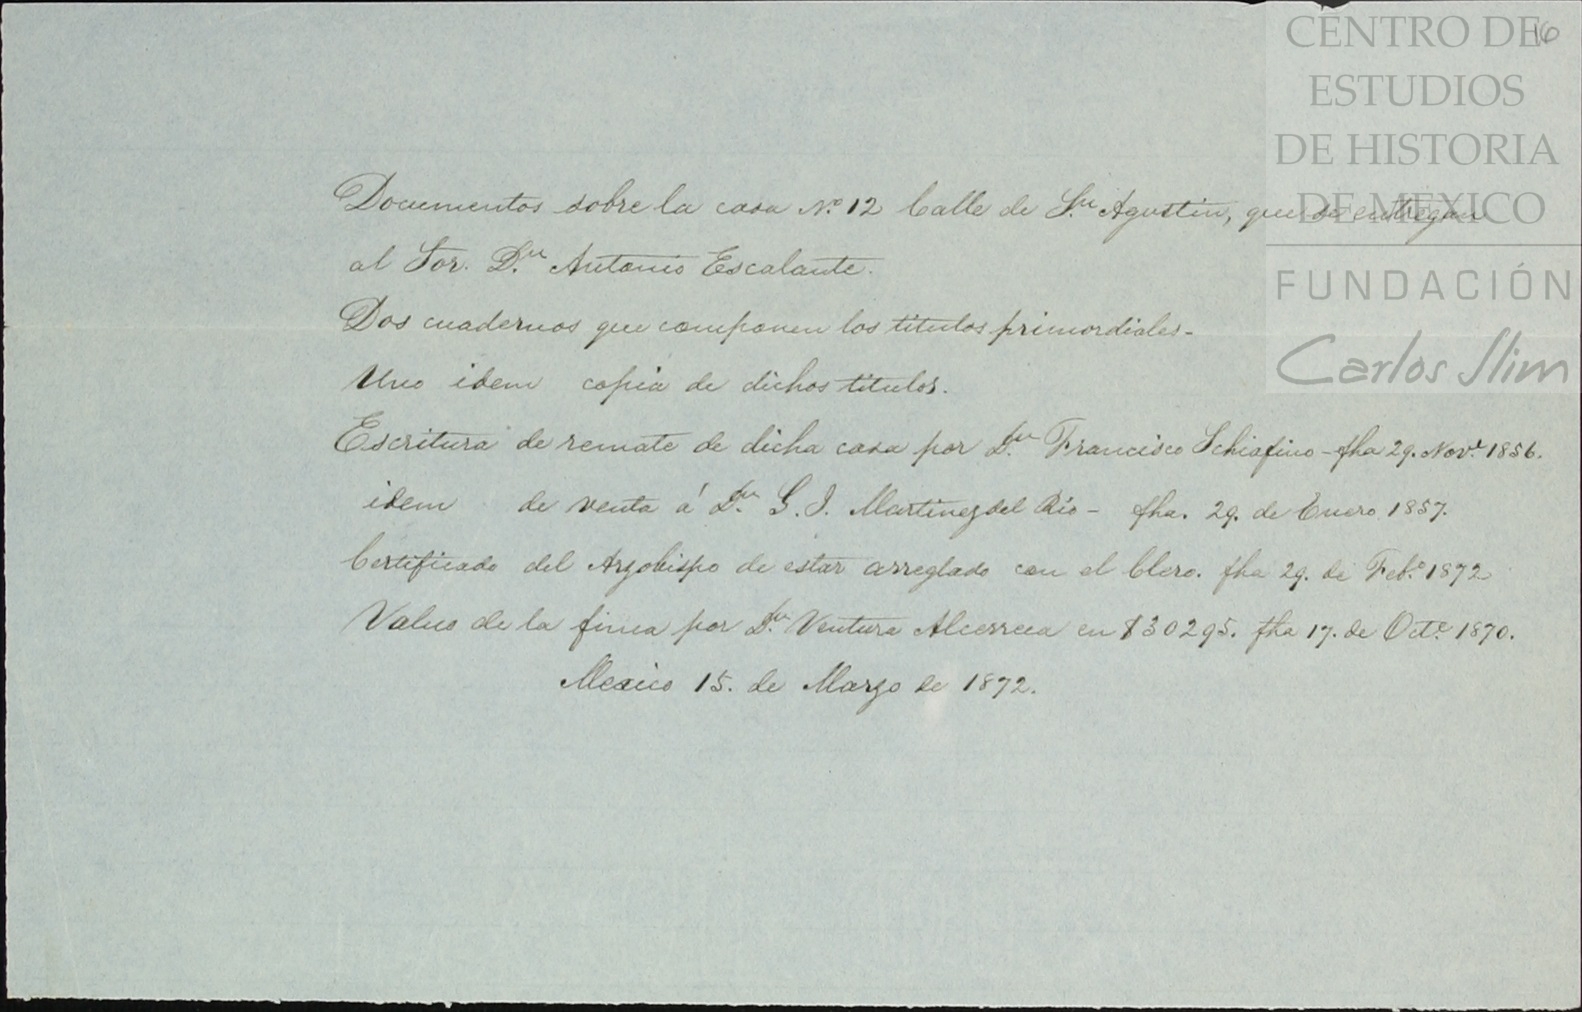 16
CENTRO DE
ESTUDIOS
DE HISTORIA
DE MÉXICO
FUNDACIÓN
Carlos Slim
Documentos sobre la casa N.º 12 Calle de S.ⁿ Agustin, que se entregan
al Sor. D.ⁿ Antonio Escalante.
Dos cuadernos que componen los titulos primordiales-
Uno idem copia de dichos titulos.
Escritura de remate de dicha casa por D.ⁿ Francisco Schiafino - fha 29. Nov.e 1856.
idem de venta á D.ⁿ G. J. Martinez del Rio - fha. 29. de Enero 1857.
Certificado del Arzobispo de estar arreglado con el Clero. fha 29. de Feb.º 1872
Valuo de la finca por D.ⁿ Ventura Alcerreca en $30295. fha 17. de Oct.e 1870.
Mexico 15. de Marzo de 1872.